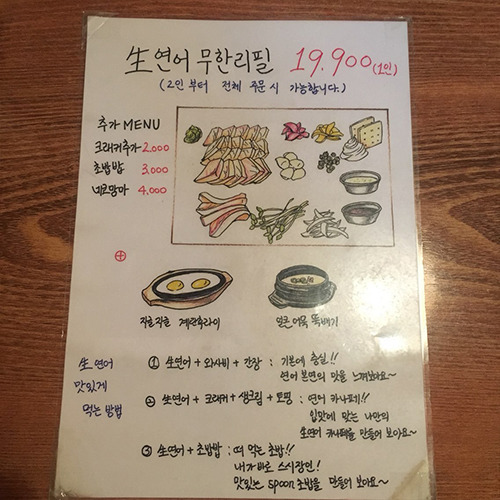 生연어 무한리필 19.900(1인)
(2인 부터 전체 주문 시 가능합니다.)
추가 MENU
크래커추가 2.000
초밥밥 3.000
네코맘마 4.000
지글지글 계란후라이
얼큰 어묵 뚝배기
生연어
맛있게
먹는 방법
① 生연어 + 와사비 + 간장 : 기본에 충실!!
연어 본연의 맛을 느껴보아요~
② 生연어 + 크래커 + 생크림 + 토핑 : 연어 카나페!!
입맛에 맞는 나만의
생연어 카나페를 만들어 보아요~
③ 生연어 + 초밥밥 : 떠 먹는 초밥!!
내가 바로 스시장인!
맛있는 spoon 초밥을 만들어 보아요~